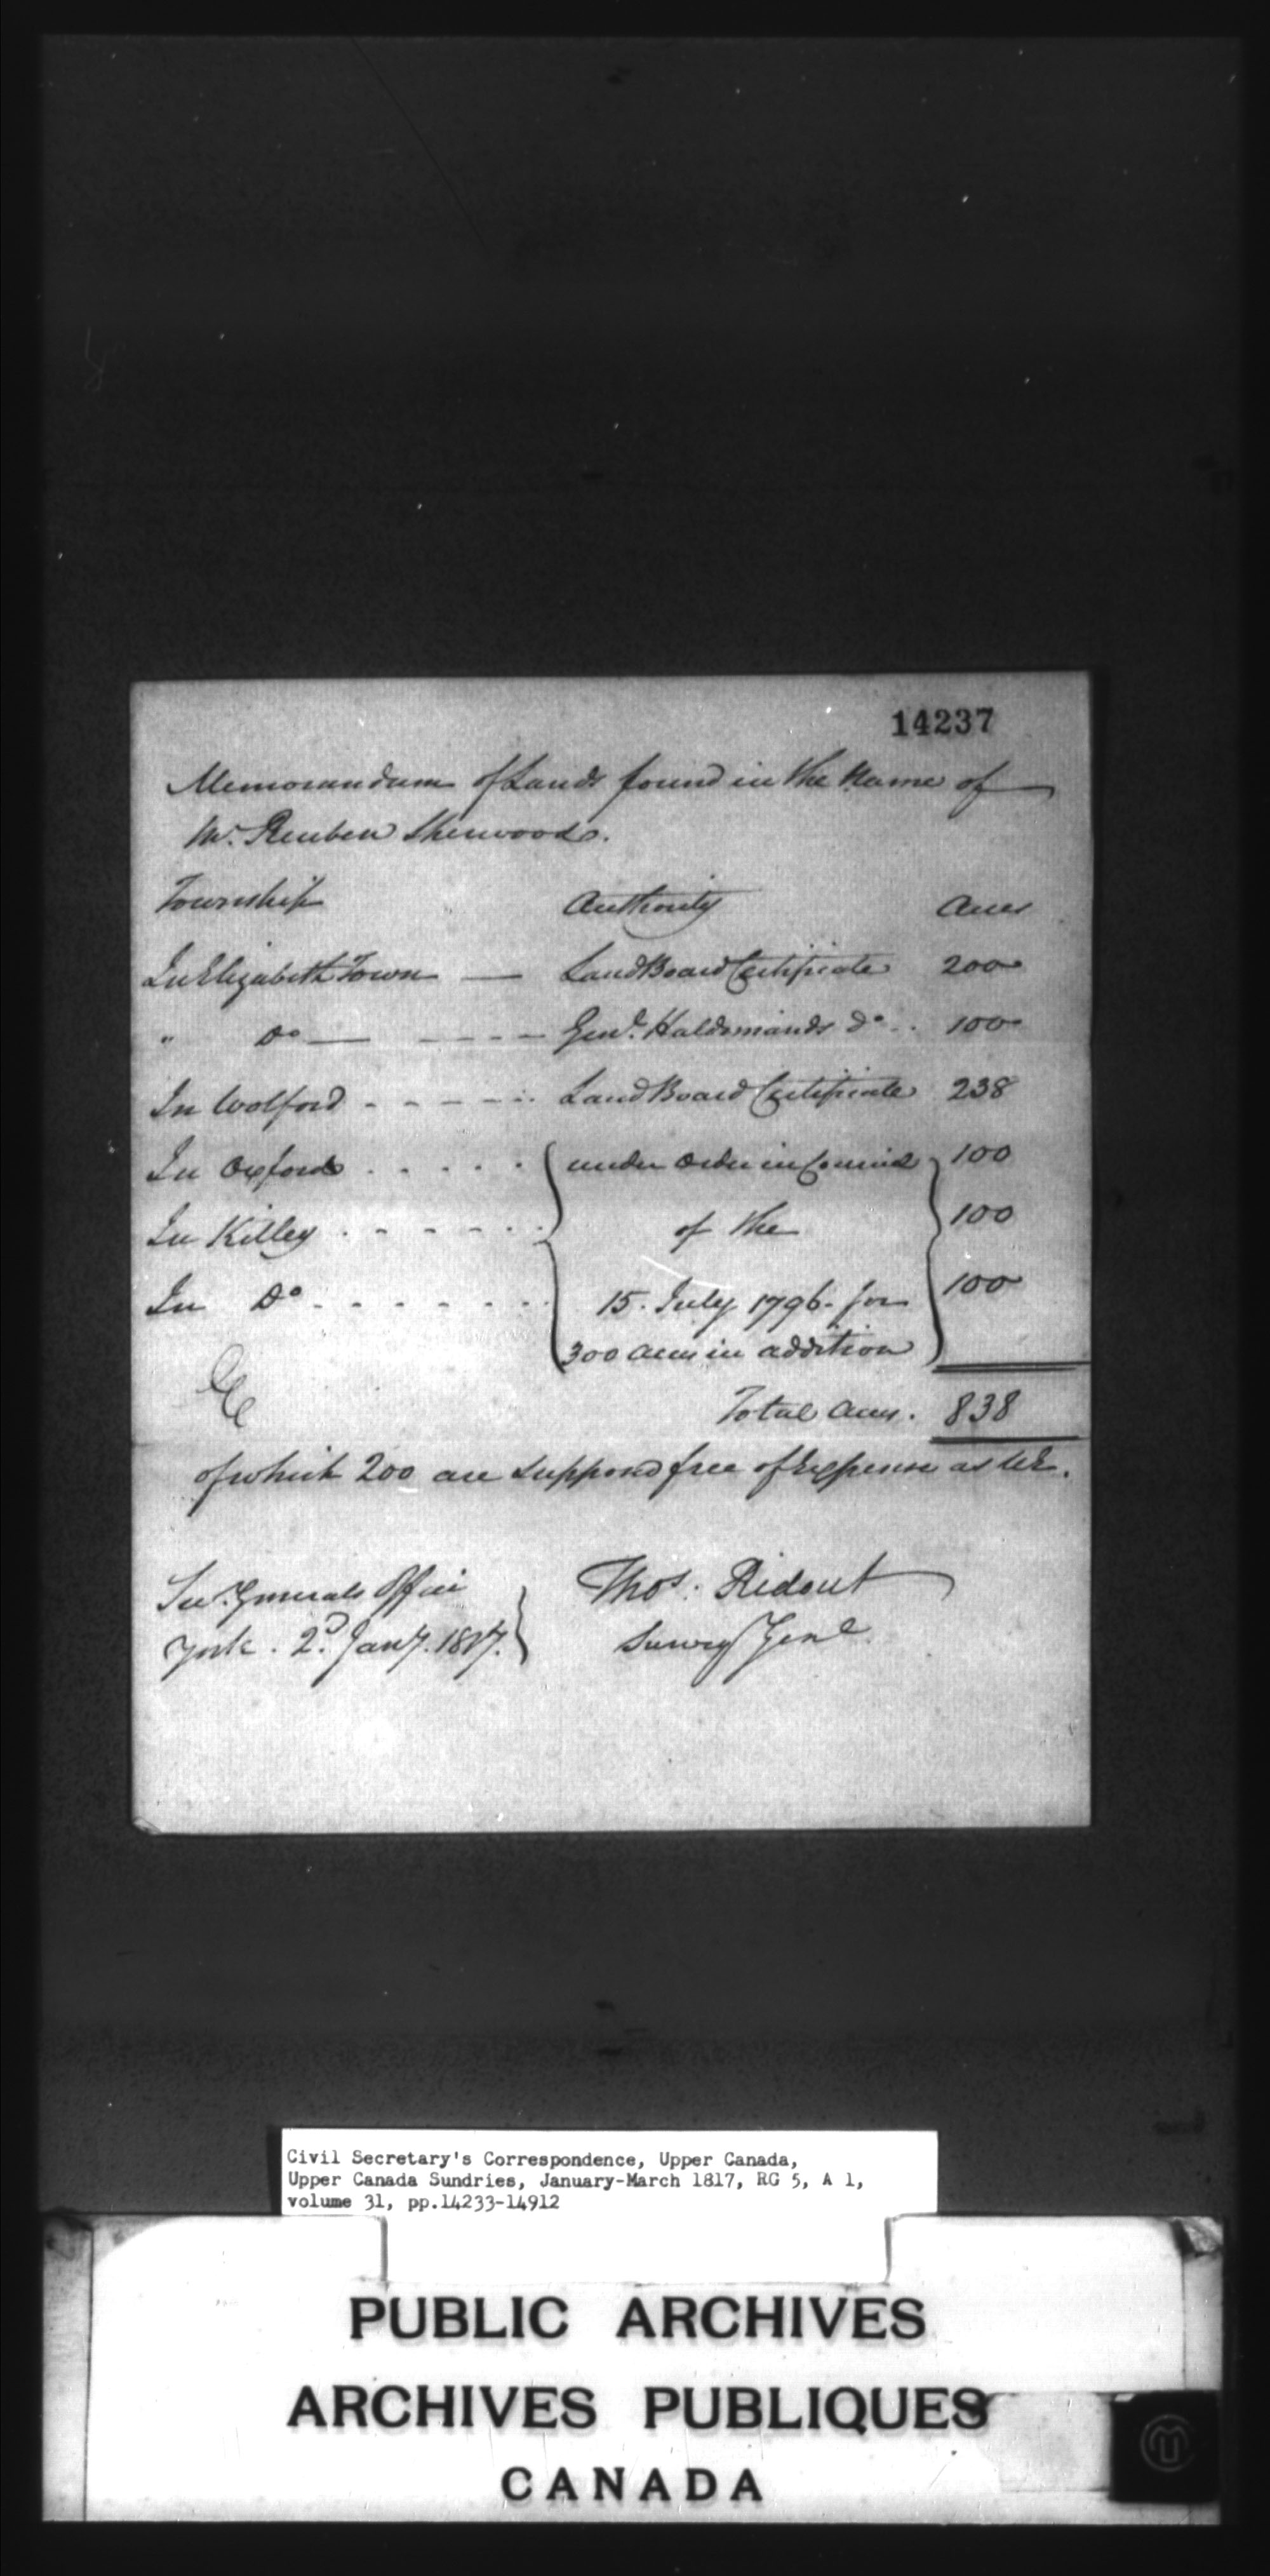 14237
Memorandum of Lands found in the Name of
Mr. Reuben Sherwood.
Township Authority Acres
In Elizabeth Town — Land Board Certificate 200
" Do — - - - - Genl. Haldimands do . . 100
In Wolford - - - - - Land Board Certificate 238
In Oxford . . . . . under Order in Council 100
In Kitley . - - - - . of the 100
In Do . - . - . - . 15. July 1796. for 100
300 acres in addition
Total acres. 838
of which 200 are supposed free of Expense as UE.
Sur. Generals Office Thos. Ridout
York. 2d. Jany. 1817. Survey Genl.
Civil Secretary's Correspondence, Upper Canada,
Upper Canada Sundries, January-March 1817, RG 5, A 1,
volume 31, pp.14233-14912
PUBLIC ARCHIVES
ARCHIVES PUBLIQUES
CANADA